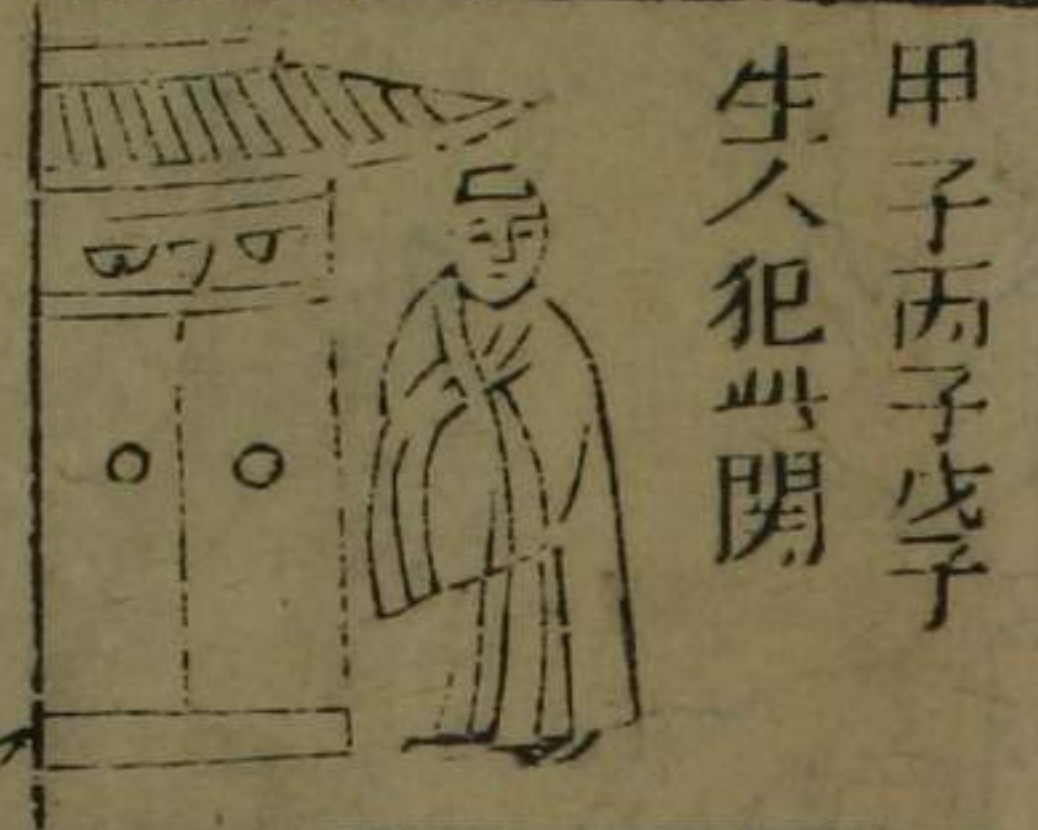 甲子丙子戊子
生人犯此関